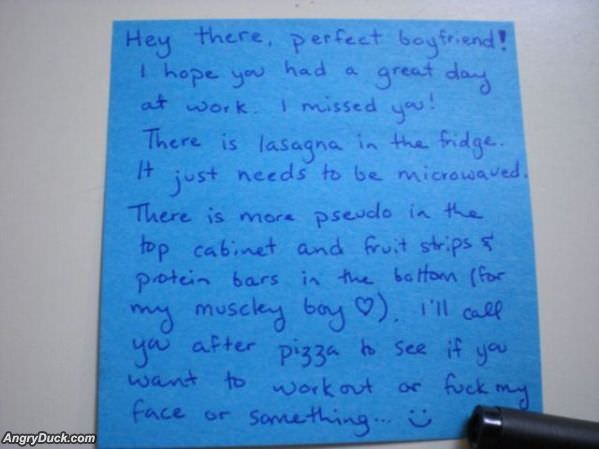 Hey there, perfect boyfriend!
I hope you had a great day
at work. I missed you!
There is lasagna in the fridge.
It just needs to be microwaved.
There is more pseudo in the
top cabinet and fruit strips &
protein bars in the bottom (for
my muscley boy ♡). I'll call
you after pizza to see if you
want to workout or fuck my
face or something... :)
AngryDuck.com